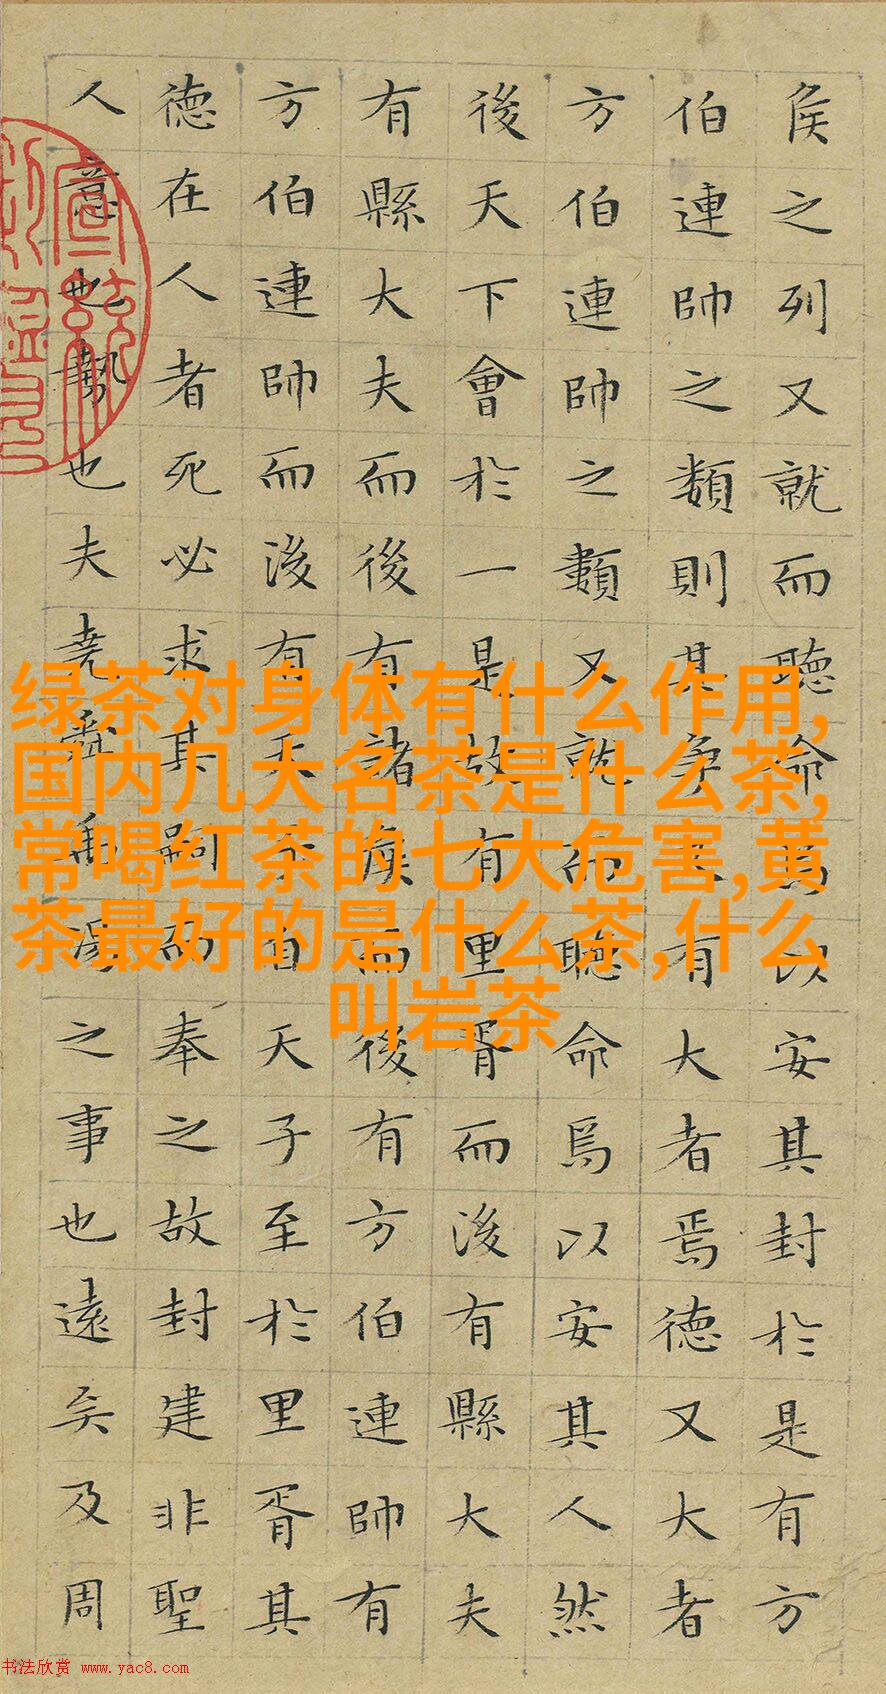 侯之列又就而聽命焉以安其封於是有方
伯連帥之類則其爭又有大者焉德又大者
方伯連帥之類又就而聽命焉以安其人然
後天下會於一是故有里胥而後有縣大夫
有縣大夫而後有諸侯而後有方伯連帥有
方伯連帥而後有天子自天子至於里胥其
德在人者死必求其嗣而奉之故封建非聖
人意也勢也夫堯舜禹湯之事也遠矣及周
绿茶对身体有什么作用,
国内几大名茶是什么茶,
常喝红茶的七大危害,黄
茶最好的是什么茶,什么
叫岩茶
书法欣赏 www.yac8.com